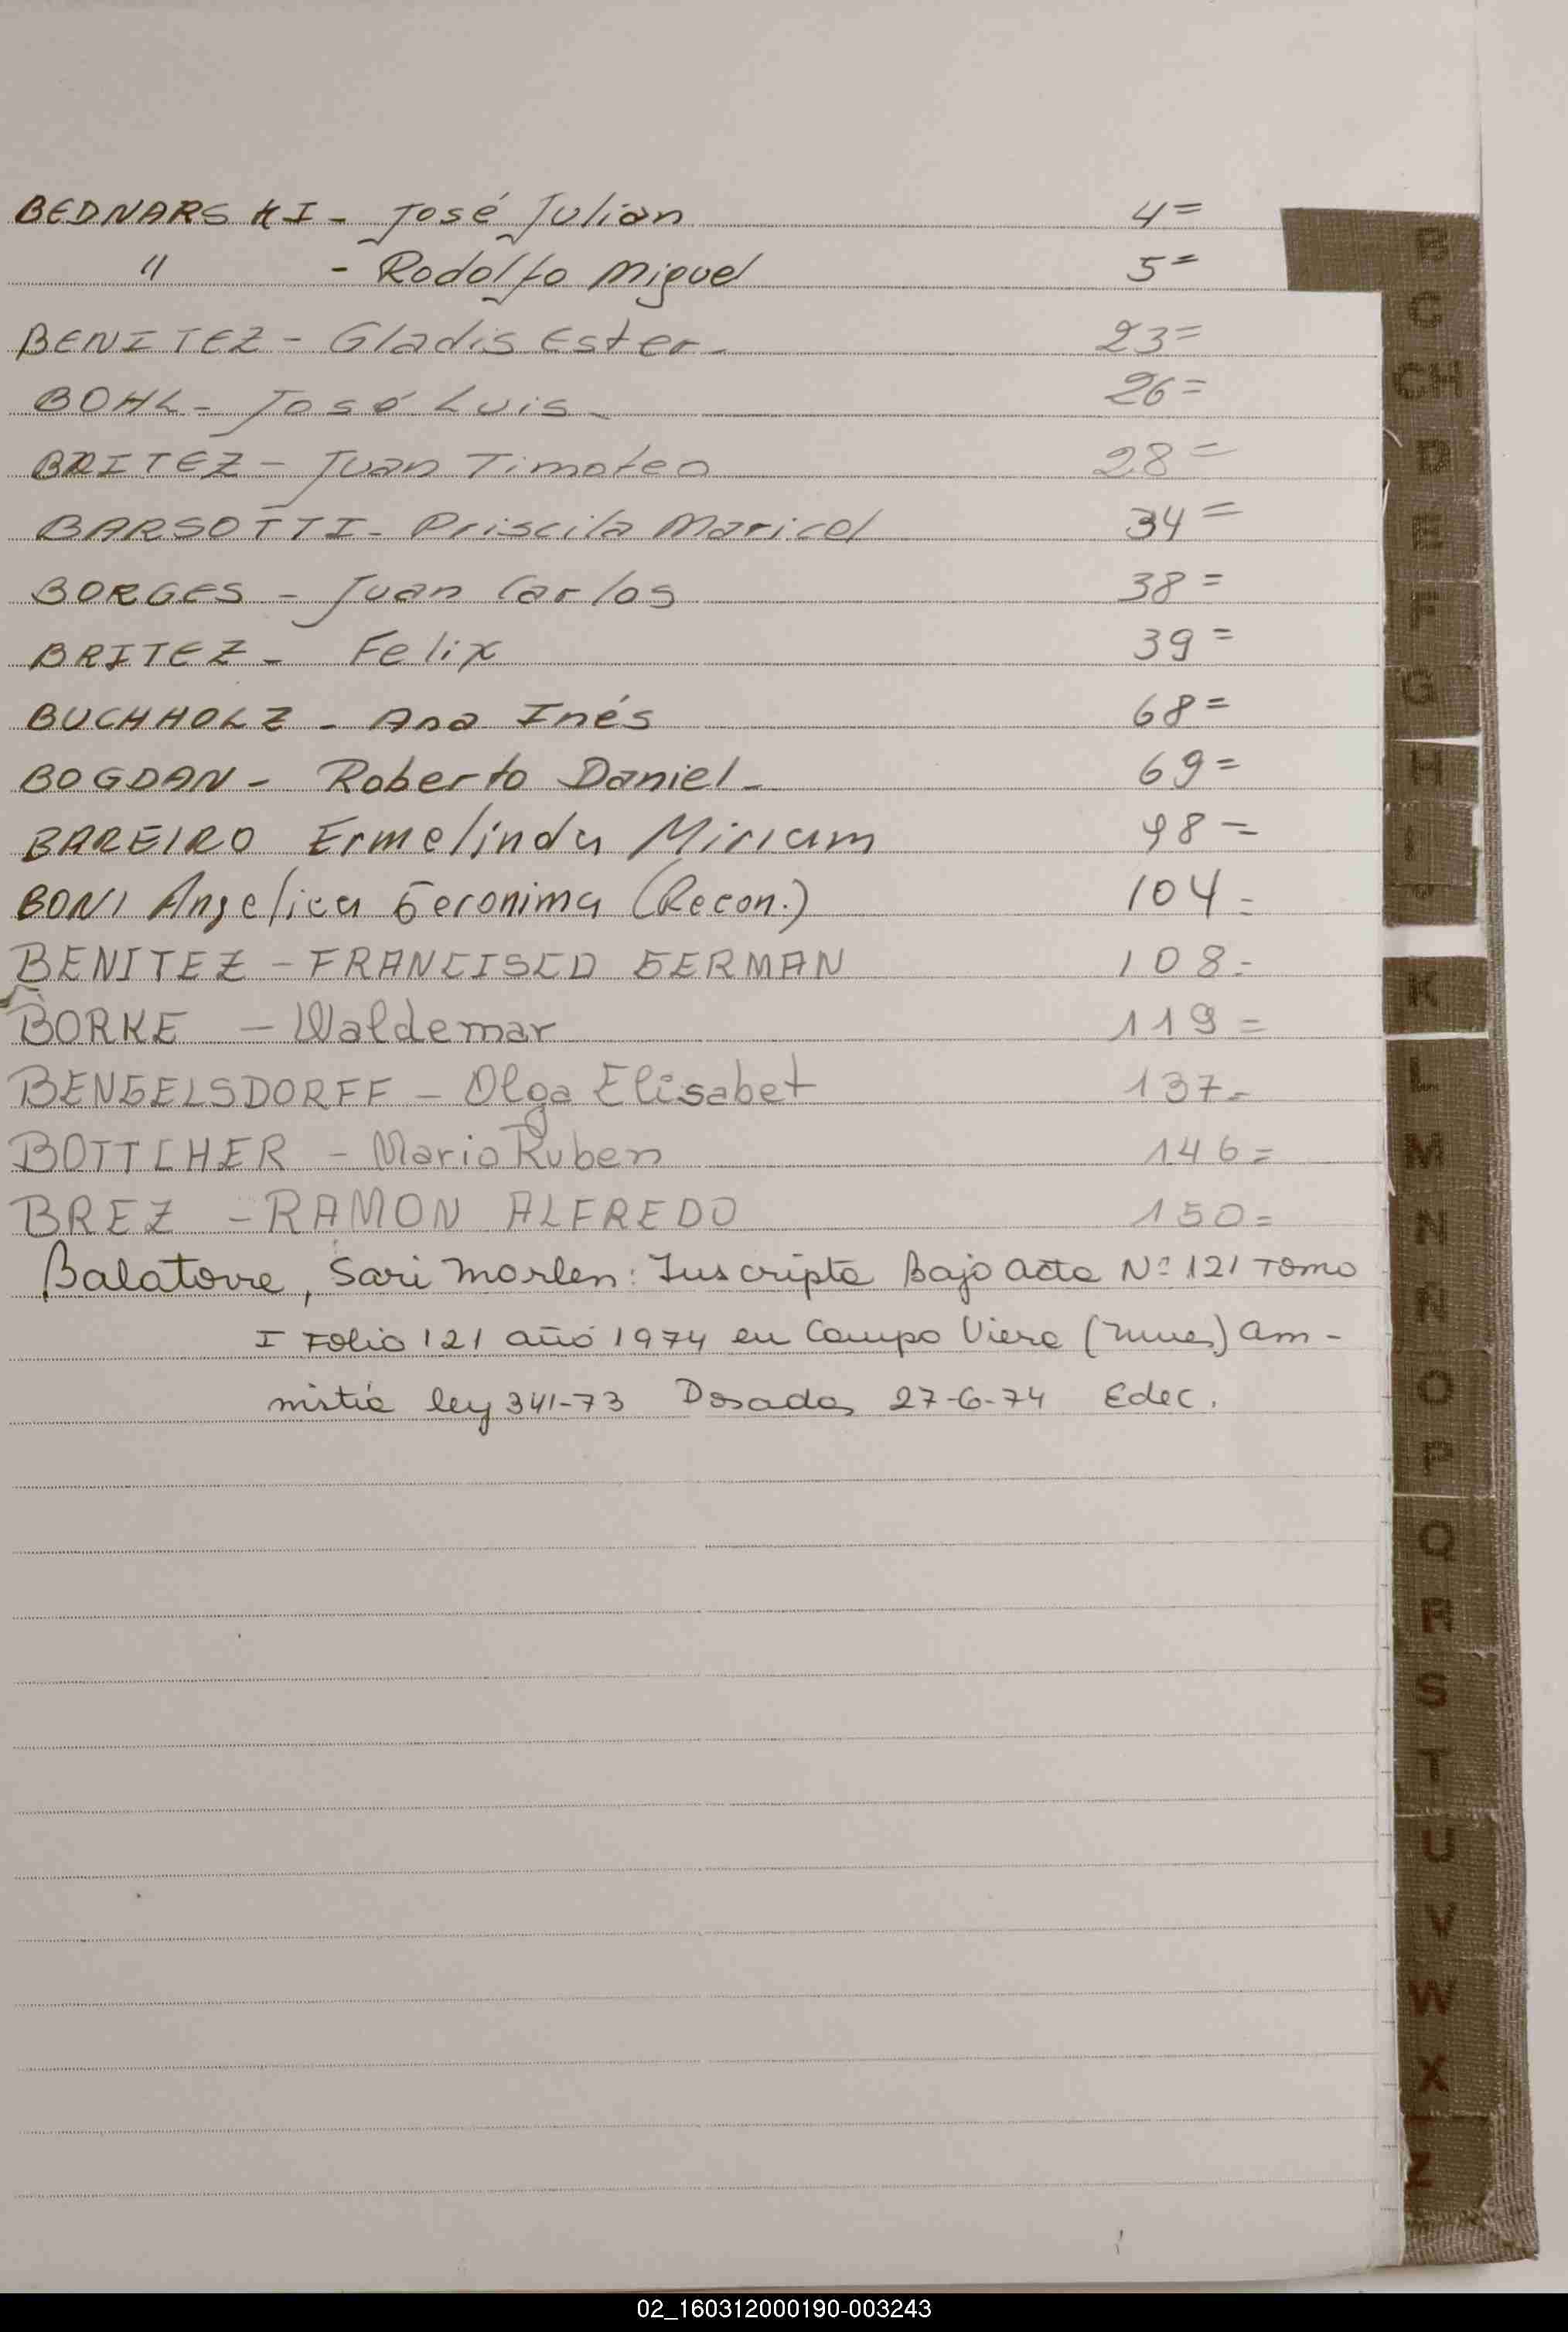 BEDNARSKI - José Julian 4=
" - Rodolfo Miguel 5=
BENITEZ - Gladis Ester - 23=
BOHL - José Luis - 26=
BRITEZ - Juan Timoteo 28=
BARSOTTI - Priscila Maricel 34=
BORGES - Juan Carlos 38=
BRITEZ - Felix 39=
BUCHHOLZ - Ana Inés 68=
BOGDAN - Roberto Daniel - 69=
BAREIRO Ermelinda Miriam 98=
BONI Angelica Geronima (Recon.) 104=
BENITEZ - FRANCISCO GERMAN 108=
BORKE - Waldemar 119=
BENGELSDORFF - Olga Elisabet 137=
BOTTCHER - Mario Ruben 146=
BREZ - RAMON ALFREDO 150=
Balatorre, Sari Marlen: Inscripta Bajo acta Nº 121 Tomo
I Folio 121 año 1974 en Campo Viera (Mnes) am-
nistia ley 341-73 Posadas 27-6-74 Edec.
B
C
CH
D
E
F
G
H
I
K
L
M
N
Ñ
O
P
Q
R
S
T
U
V
W
X
Z
02_160312000190-003243